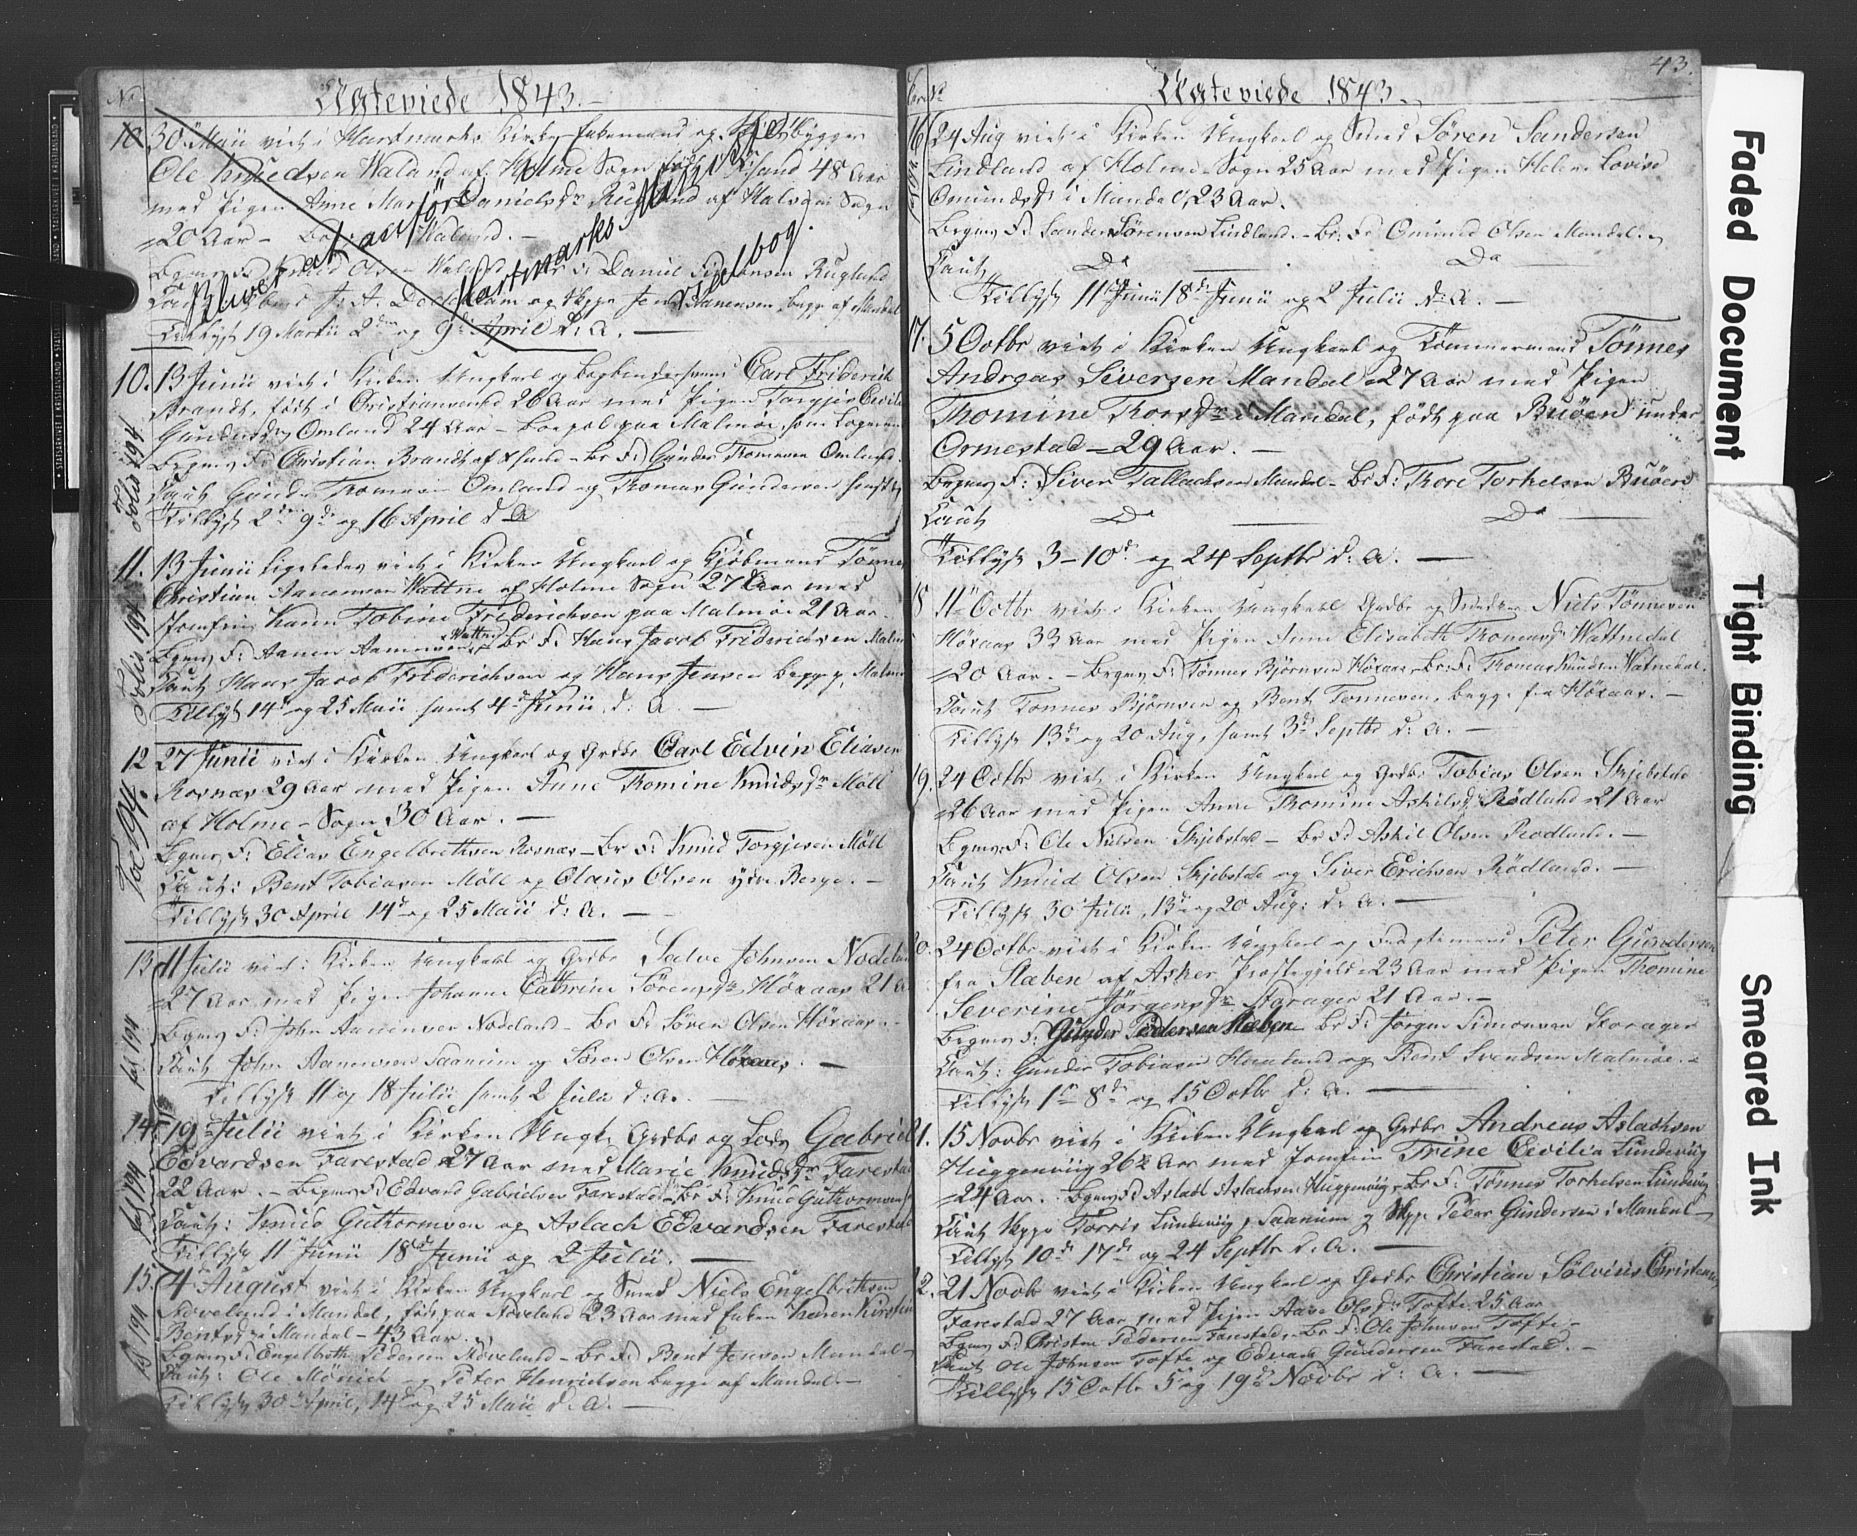 Ægteviede 1843.
No
10 30 Maii viet i Hartmarks Kirke Enkemand og Skibsbygger
Ole Knudsen Waland af Holme Sogn født i Xsand 48 Aar
med Pigen Anne Mar Danielsdr Rugland af Halsaa Sogn
20 Aar –
Bgms F: Knud Olsen Waland Br F: Daniel Rugland
og Skpr Jens Aanensen, begge af Mandal
Tillyst 19 Martii 2den og 9de April d: A. —
Bliver at anføre
Hartmarks
Vielsebog.
10. 13 Junii viet i Kirken Ungkarl og Bogbindersvend Carl Friderik
Brandt, født i Christiansand 26 Aar med Pigen Torgjer Cecilie
Gundersdr Omland 24 Aar – Bopæl paa Malmøe
Bgms F: Christian Brandt af Xsand – Br F: Gunder Thomesen Omland
Caut Gunder Thomesen Omland og Thomas Gundersen
Tillyst 2den 9de og 16 April d A
Folio 194
11. 13 Junii ligeledes viet i Kirken Ungkarl og Kjøbmand Tønnes
Christian Aanensen Wattne af Holme Sogn 27 Aar med
Jomfru Hanne Tobine Friderichsen paa Malmøe 21 Aar.
Bgms F: Aanen Aanensen Wattne – Br F: Hans Jacob Friderichsen Malmøe
Caut Hans Jacob Friderichsen og Hans Jensen begge p. Malmøe
Tillyst 14de og 25 Maii samt 4de Junii, d: A. —
Folio 194
12 27 Junii viet i Kirken Ungkarl og Grdbr Carl Edvin Eliasen
Rosnæs 29 Aar med Pigen Anne Thomine Knudsdr Møll
af Holme – Sogn 30 Aar. —
Bgms F: Elias Engelbrethsen Rosnæs – Br F: Knud Torgjesen Møll
Caut: Bent Tobiasen Møll og Olaus Olsen ytre Berge. –
Tillyst 30 April 14de og 25 Maii d: A. —
Fol 194.
13 11 Julii viet i Kirken Ungkarl og Grdbr Salve Johnsen Nodeland
27 Aar med Pigen Johanne Cathrine Sörensdr Höxaas 21 A
Bgms F: John Aanensen Nodeland – Br F: Søren Olsen Höxaas. –
Caut John Aanensen Saanum og Søren Olsen Höxaas. —
Tillyst 11 og 18 Julii samt 2 Julii d: A. —
fol 194
14 19 Julii viet i Kirken Ungk: Grdbr og Lods Gabriel
Edvardsen Farestad 27 Aar med Marie Knudsdr Farestad
22 Aar. – Bgms F: Edvard Gabrielsen Farestad – Br F: Knud Guthormsen
Caut: Knud Guthormsen og Aslach Edvardsen Farestad
Tillyst 11 Junii 18de Junii og 2 Julii. —
fol 194
15. 4 August viet i Kirken Ungkarl og Smed Niels Engelbrethsen
Støveland i Mandal, født paa Støveland 23 Aar med Enken Karen Kirstine
Bentsdr i Mandal – 43 Aar.
Bgms F: Engelbreth Pedersen Støveland – Br F: Bent Jensen Mandal –
Caut: Ole Mönich og Peter Henrichsen begge af Mandal. –
Tillyst 30 April, 14de og 25 Maii d: A. —
fol 194
43.
Ægteviede 1843.
No
16 24 Aug viet i Kirken Ungkarl og Smed Søren Sandersen
Lindland af Holme Sogn 25 Aar med Pigen Helene Lovise
Omundsdr i Mandal, 23 Aar.
Bgms F: Sander Sørensen Lindland – Br: F: Omund Olsen Mandal. –
Caut Do — Do —
Tillyst 11te Junii 18de Junii og 2 Julii d: A. —
17. 5 Octbr viet i Kirken Ungkarl og Tømmermand Tönnes
Andreas Siversen Mandal 27 Aar med Pigen
Thomine Thorsdr i Mandal, født paa Buøen under
Ormestad – 29 Aar. —
Bgms F: Siver Tallachsen Mandal – Br F: Thore Torkelsen Buøen
Caut Do — Do —
Tillyst 3 – 10de og 24 Septbr d: A. —
18 11te Octbr viet i Kirken Ungkarl Grdbr og Snedker Niels Tönnesen
Höxaas 33 Aar med Pigen Anne Elisabeth Thomasdr Wattnedal
20 Aar. – Bgms F: Tønnes Bjørnsen Höxaas – Br: F: Thomas Knudsen Watnedal.
Caut Tønnes Bjørnsen og Bent Tønnesen, begge fra Höxaas. –
Tillyst 13de og 20 Aug, samt 3de Septbr d: A. —
19. 24 Octbr viet i Kirken Ungkarl og Grdbr Tobias Olsen Skjebstad
26 Aar med Pigen Anne Thomine Askilsdr Rødland 21 Aar
Bgms F: Ole Nielsen Skjebstad – Br F: Askil Olsen Rødland. —
Caut Knud Olsen Skjebstad og Siver Erichsen Rødland. —
Tillyst 30 Julii, 13de og 20 Aug: d: A. —
20. 24 Octbr viet i Kirken Ungkarl og Fragtemand Peter Gundersen
fra Slæben af Asker Præstegjeld 23 Aar med Pigen Thomine
Severine Jørgensdr Storager 21 Aar. –
Bgms F: Gunder Pedersen Slæben – Br F: Jørgen Simonsen Storager
Caut: Gunder Tobiasen og Bent Svendsen Malmøe. –
Tillyst 1ste 8de og 15 Octbr d: A. —
21. 15 Novbr viet i Kirken Ungkarl og Grdbr Andreas Aslachsen
Huggenviig 26½ Aar med Jomfru Trine Cecilia Lundeviig
24 Aar. Bgms F: Aslach Aslachsen Huggenviig – Br F: Tønnes Torkelsen Lundeviig
Caut Skpr Torris Lundeviig, Saanum og Skpr Peter Gundersen i Mandal –
Tillyst 10de 17de og 24 Septbr d: A. —
22. 21 Novbr viet i Kirken Ungkarl og Grdbr Christian Sölvius Christensen
Farestad 27 Aar med Pigen Aase Olsdr Tofte 25 Aar
Bgms F: Christen Pedersen Farestad, – Br F: Ole Johnsen Tofte –
Caut Ole Johnsen Tofte og Edvard Gundersen Farestad. –
Tillyst 15 Octbr 5 og 19de Novbr d: A. —
Faded Document
Tight Binding
Smeared Ink
STATSARKIVET KRISTIANSAND